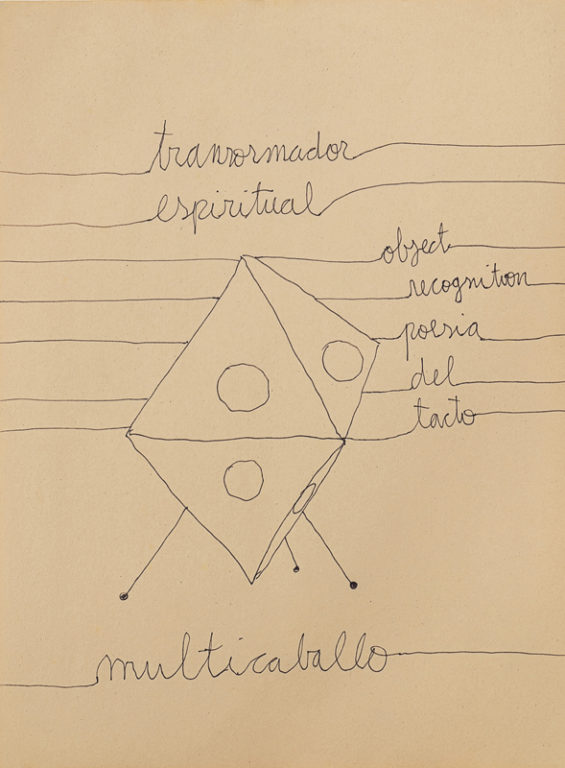 tranzormador
espiritual
object
recognition
poesia
del
tacto
multicaballo